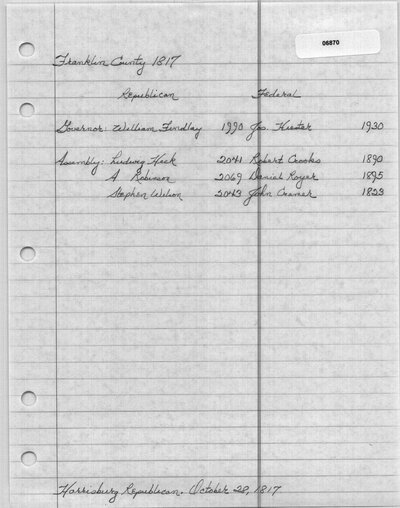 06870
Franklin County 1817
Republican Federal
Governor: William Findlay 1990 Jos. Hiester 1930
Assembly: Ludwig Heck 2041 Robert Crooks 1890
A Robinson 2069 Daniel Royer 1895
Stephen Wilson 2043 John Cramer 1853
Harrisburg Republican. October 28, 1817